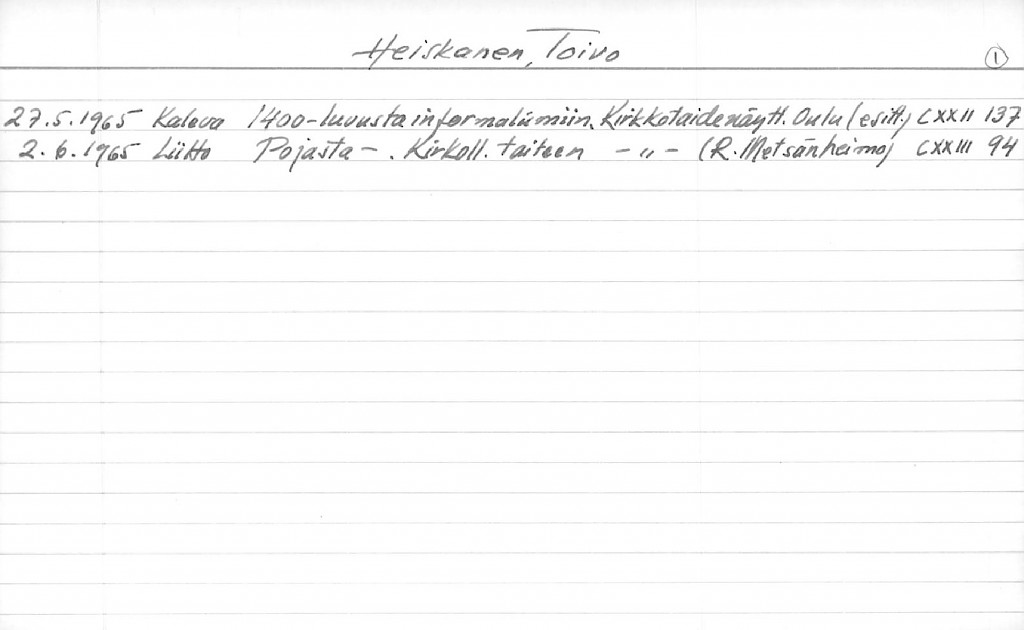 Heiskanen, Toivo
1
27.5.1965 Kaleva 1400-luvusta informalismiin. Kirkkotaidenäytt. Oulu (esitt.) CXXII 137
2.6.1965 Liitto Pojasta - . Kirkoll. taiteen - " - (R. Metsänheimo) CXXIII 94